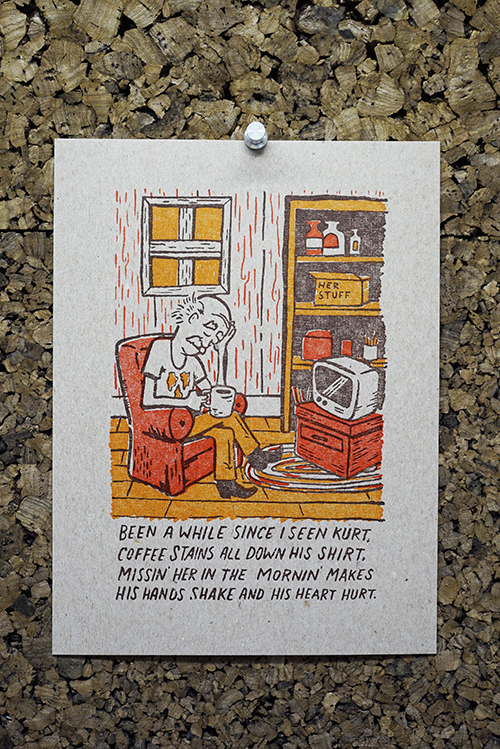 HER
STUFF
BEEN A WHILE SINCE I SEEN KURT,
COFFEE STAINS ALL DOWN HIS SHIRT.
MISSIN' HER IN THE MORNIN' MAKES
HIS HANDS SHAKE AND HIS HEART HURT.